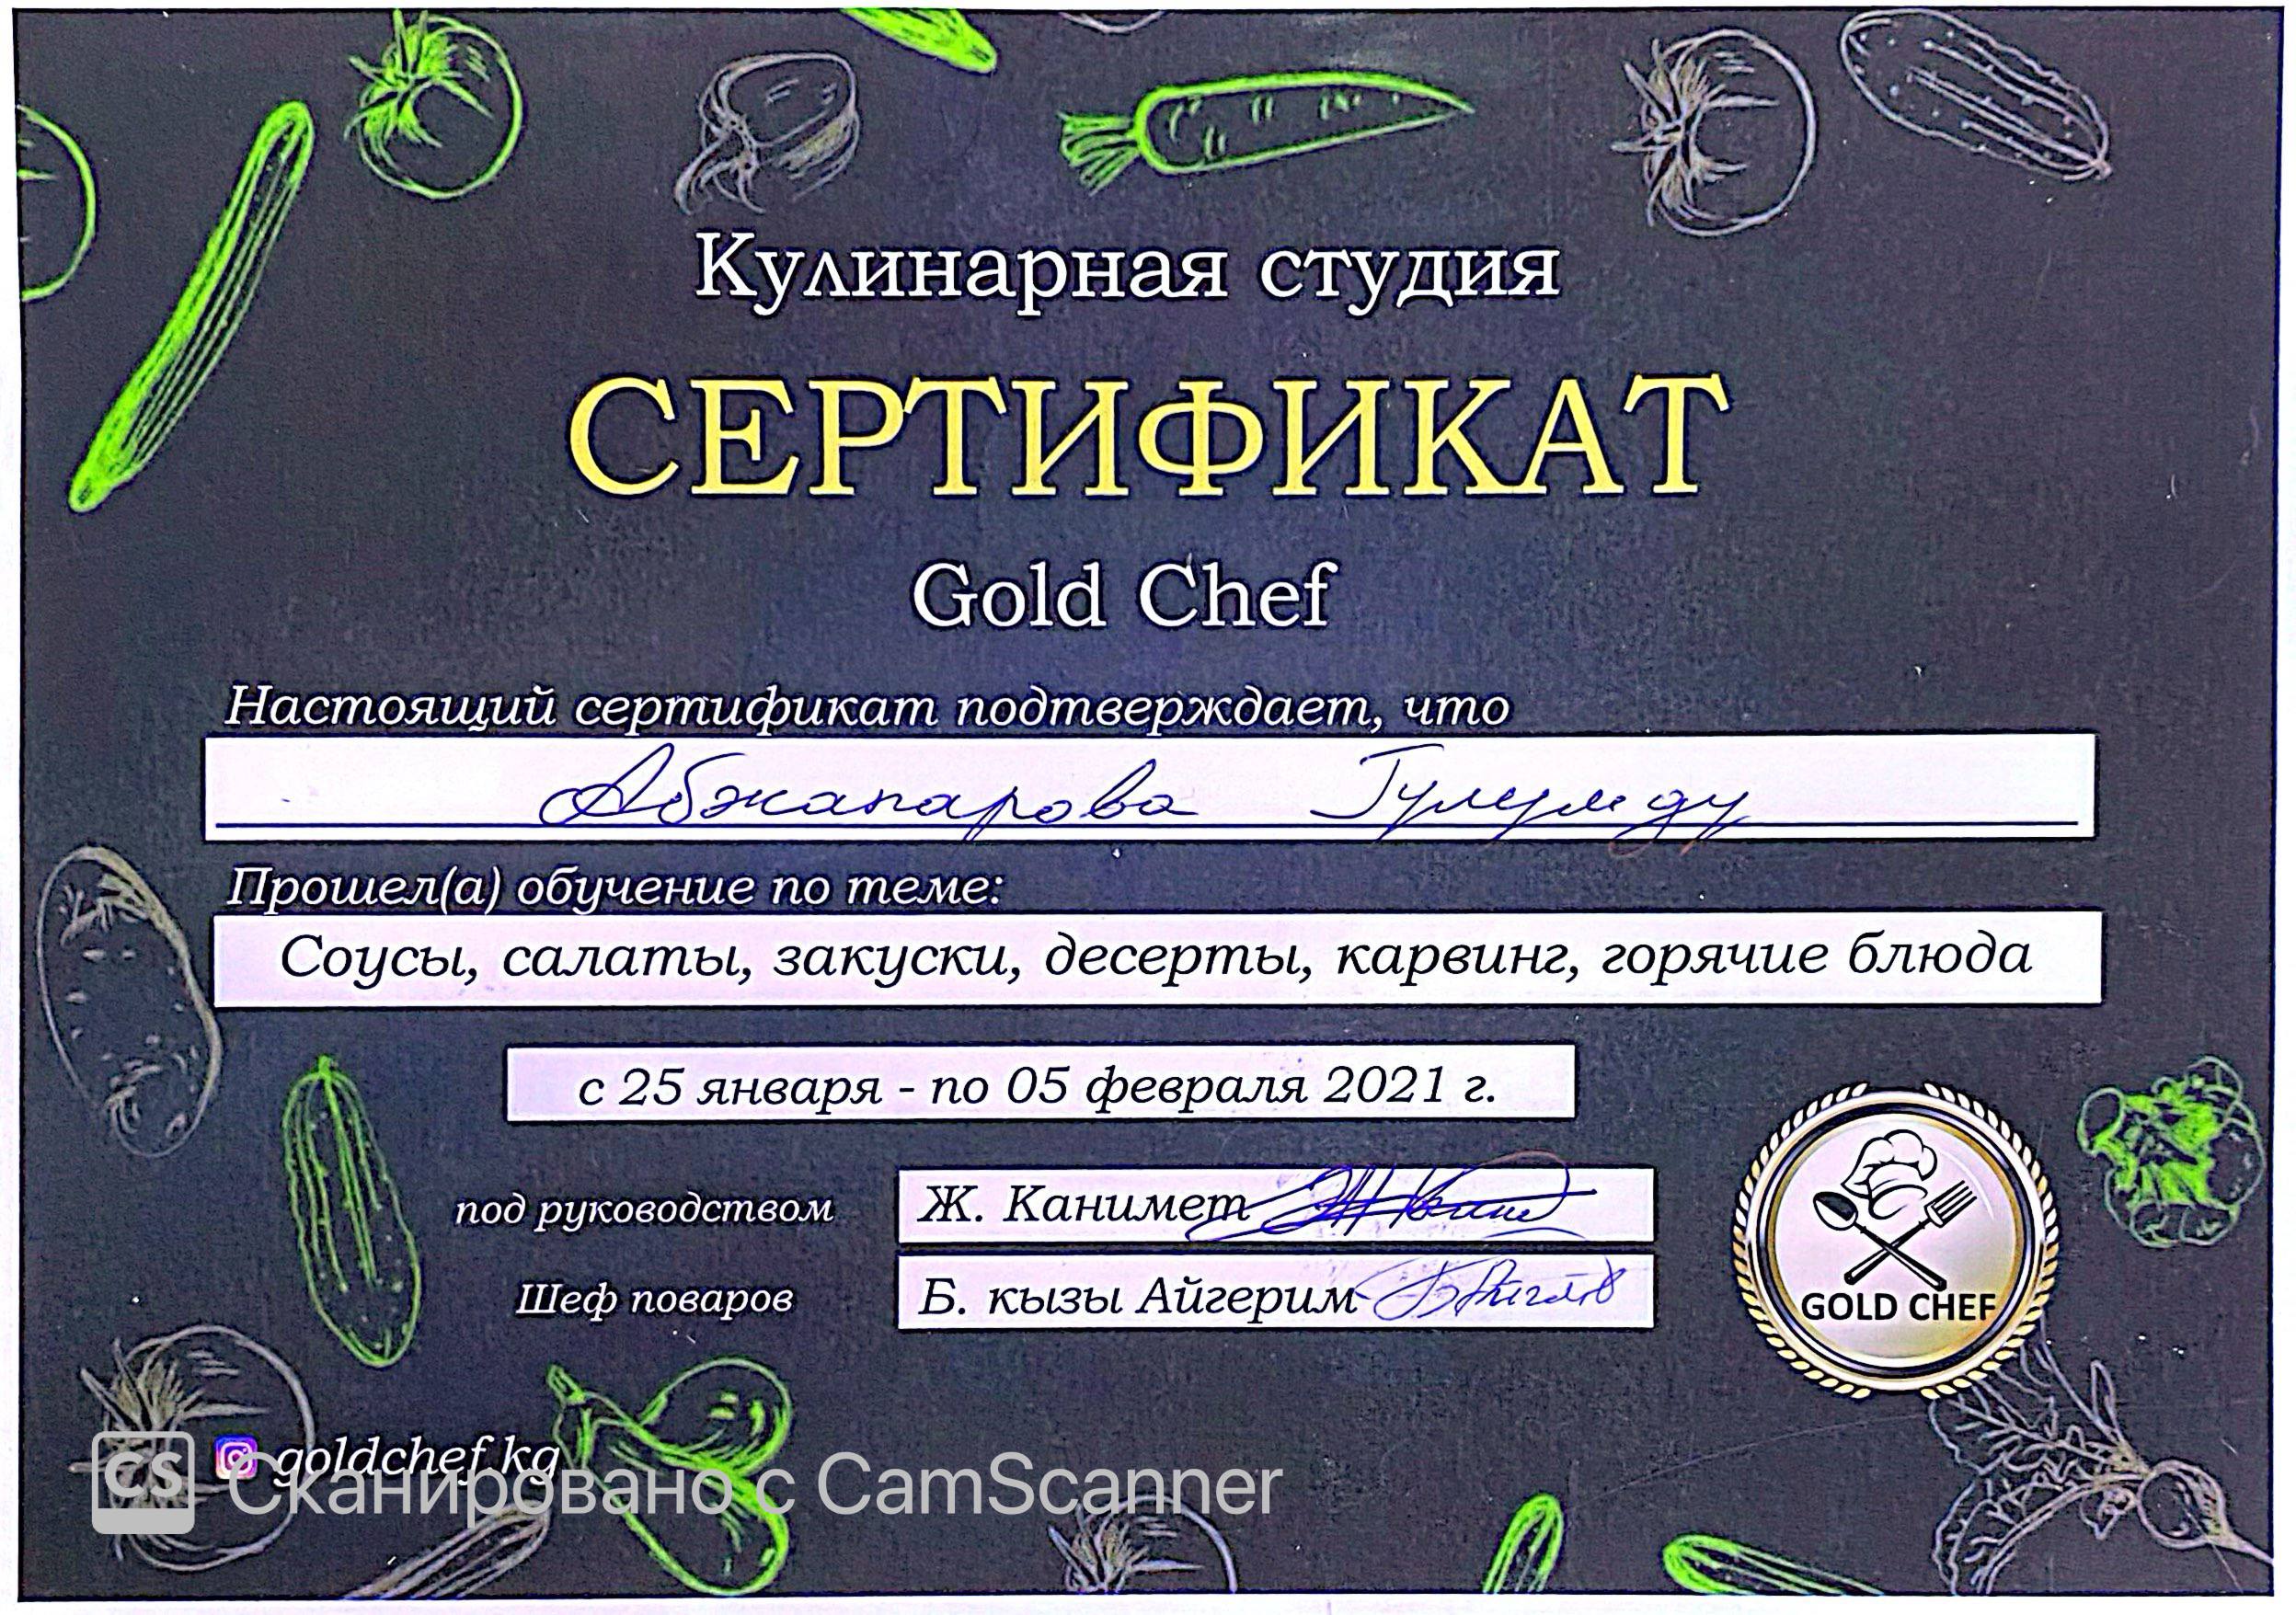 Кулинарная студия
СЕРТИФИКАТ
Gold Chef
Настоящий сертификат подтверждает, что
Абжапарова
Прошел(а) обучение по теме:
Соусы, салаты, закуски, десерты, карвинг, горячие блюда
с 25 января - по 05 февраля 2021 г.
под руководством Ж. Канимет
Шеф поваров Б. кызы Айгерим
GOLD CHEF
goldchef.kg
CS Сканировано с CamScanner